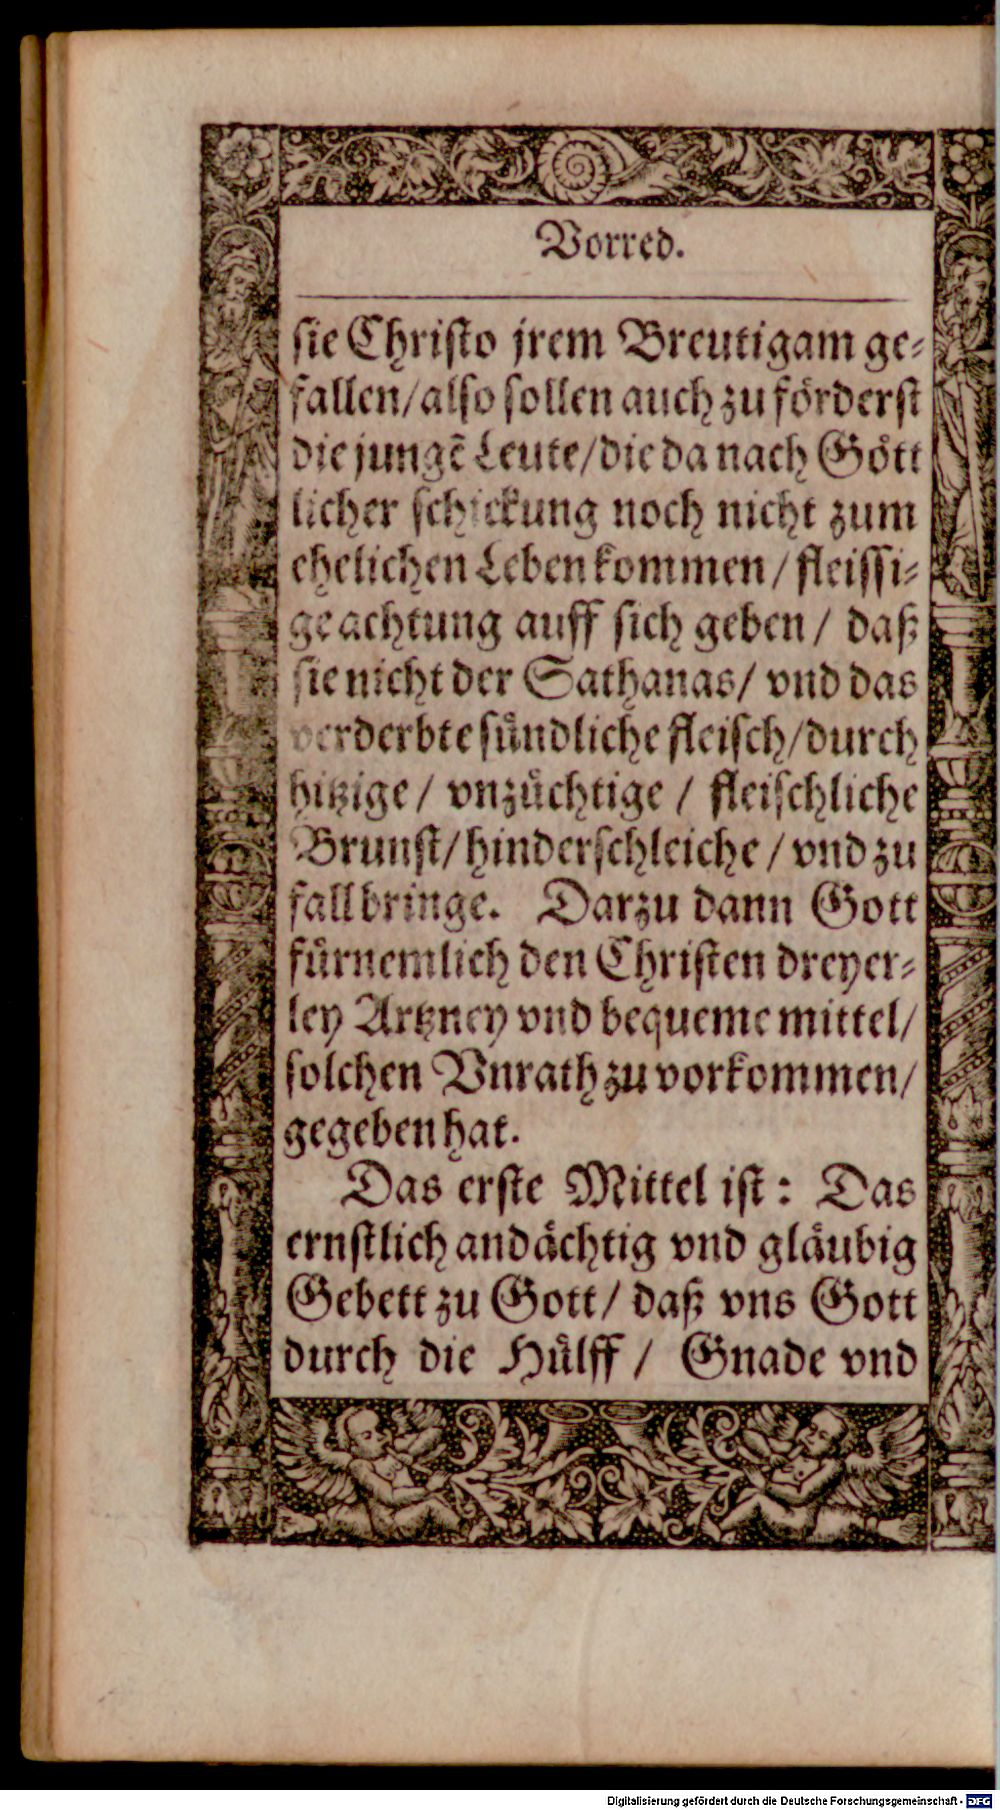 Vorred.
sie Christo jrem Breutigam ge-
fallen/also sollen auch zu förderst
die jungẽ Leute/die da nach Gött
licher schickung noch nicht zum
ehelichen Leben kommen / fleissi-
ge achtung auff sich geben / daß
sie nicht der Sathanas/ vnd das
verderbte sündliche fleisch/durch
hitzige / vnzüchtige / fleischliche
Brunst/hinderschleiche / vnd zu
fall bringe. Darzu dann Gott
fürnemlich den Christen dreyer-
ley Artzney vnd bequeme mittel/
solchen Vnrath zu vorkommen/
gegeben hat.
Das erste Mittel ist: Das
ernstlich andächtig vnd gläubig
Gebett zu Gott/ daß vns Gott
durch die Hülff / Gnade vnd
Digitalisierung gefördert durch die Deutsche Forschungsgemeinschaft - DFG